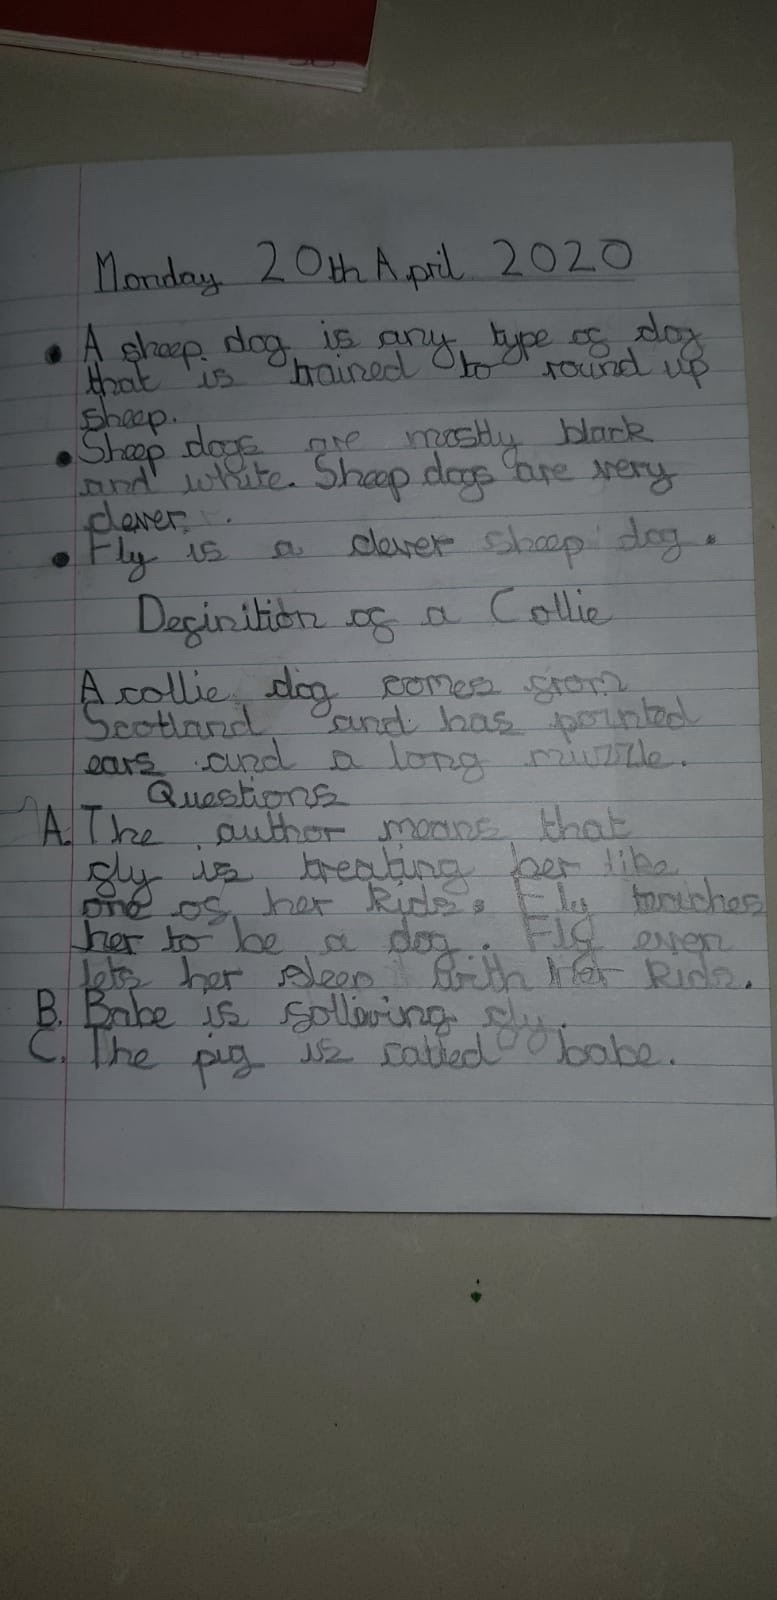 Monday 20th April 2020
• A sheep dog is any type of dog
that is trained to round up
sheep.
• Sheep dogs are mostly black
and white. Sheep dogs are very
clever.
• Fly is a clever sheep dog.
Definition of a Collie
A collie dog comes from
Scotland and has pointed
ears and a long muzzle.
Questions
A. The author means that
fly is treating her like
one of her kids. Fly teaches
her to be a dog. Fly even
lets her sleep with her kids.
B. Babe is following fly.
C. The pig is called babe.